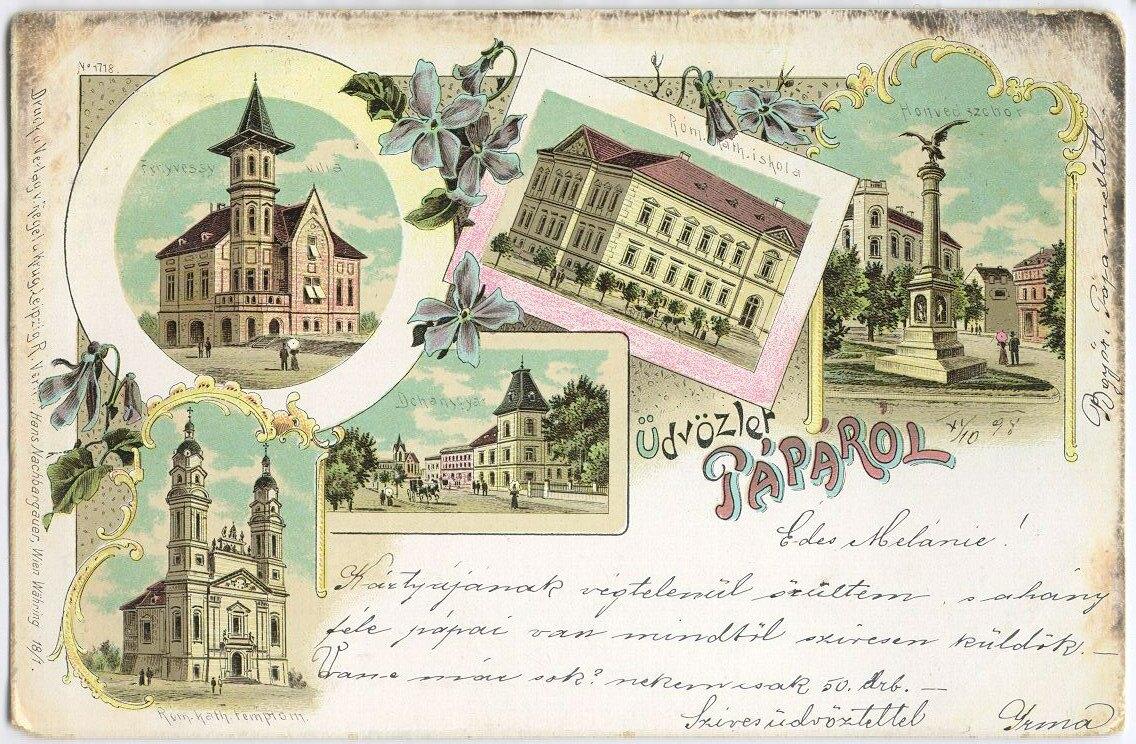 No 1718
Fenyvessy villa
Róm. kath. iskola
Honved szobor
Dohánygyár
Róm. kath. templom.
Üdvözlet
PÁPÁROL
XI/10 98
Édes Melánie!
Kártyájának végtelenül örültem, s ahány
féle pápai van mindtöl szivesen küldök. —
Van e már sok? nekem csak 50. drb. —
Szives üdvözlettel Irma
Druck u. Verlag v. Regel & Krug, Leipzig R. Vertr. Hans Nachbargauer, Wien Währing 18/1.